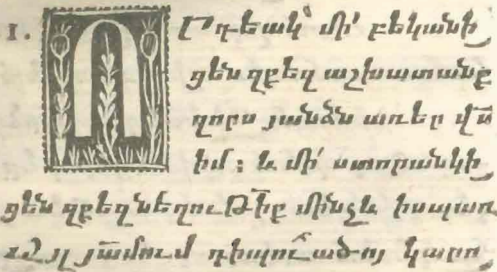 1. ՈՐդեակ՝ մի՛ բեկանի
ցեն զքեզ աշխատանք
զորս յանձն առեր վն̃
իմ ։ և մի՛ ստորանկի
ցեն զքեզ նեղութի̃ք մինչև իսպառ
այլ յամ̃ում դիպուածոյ կարո